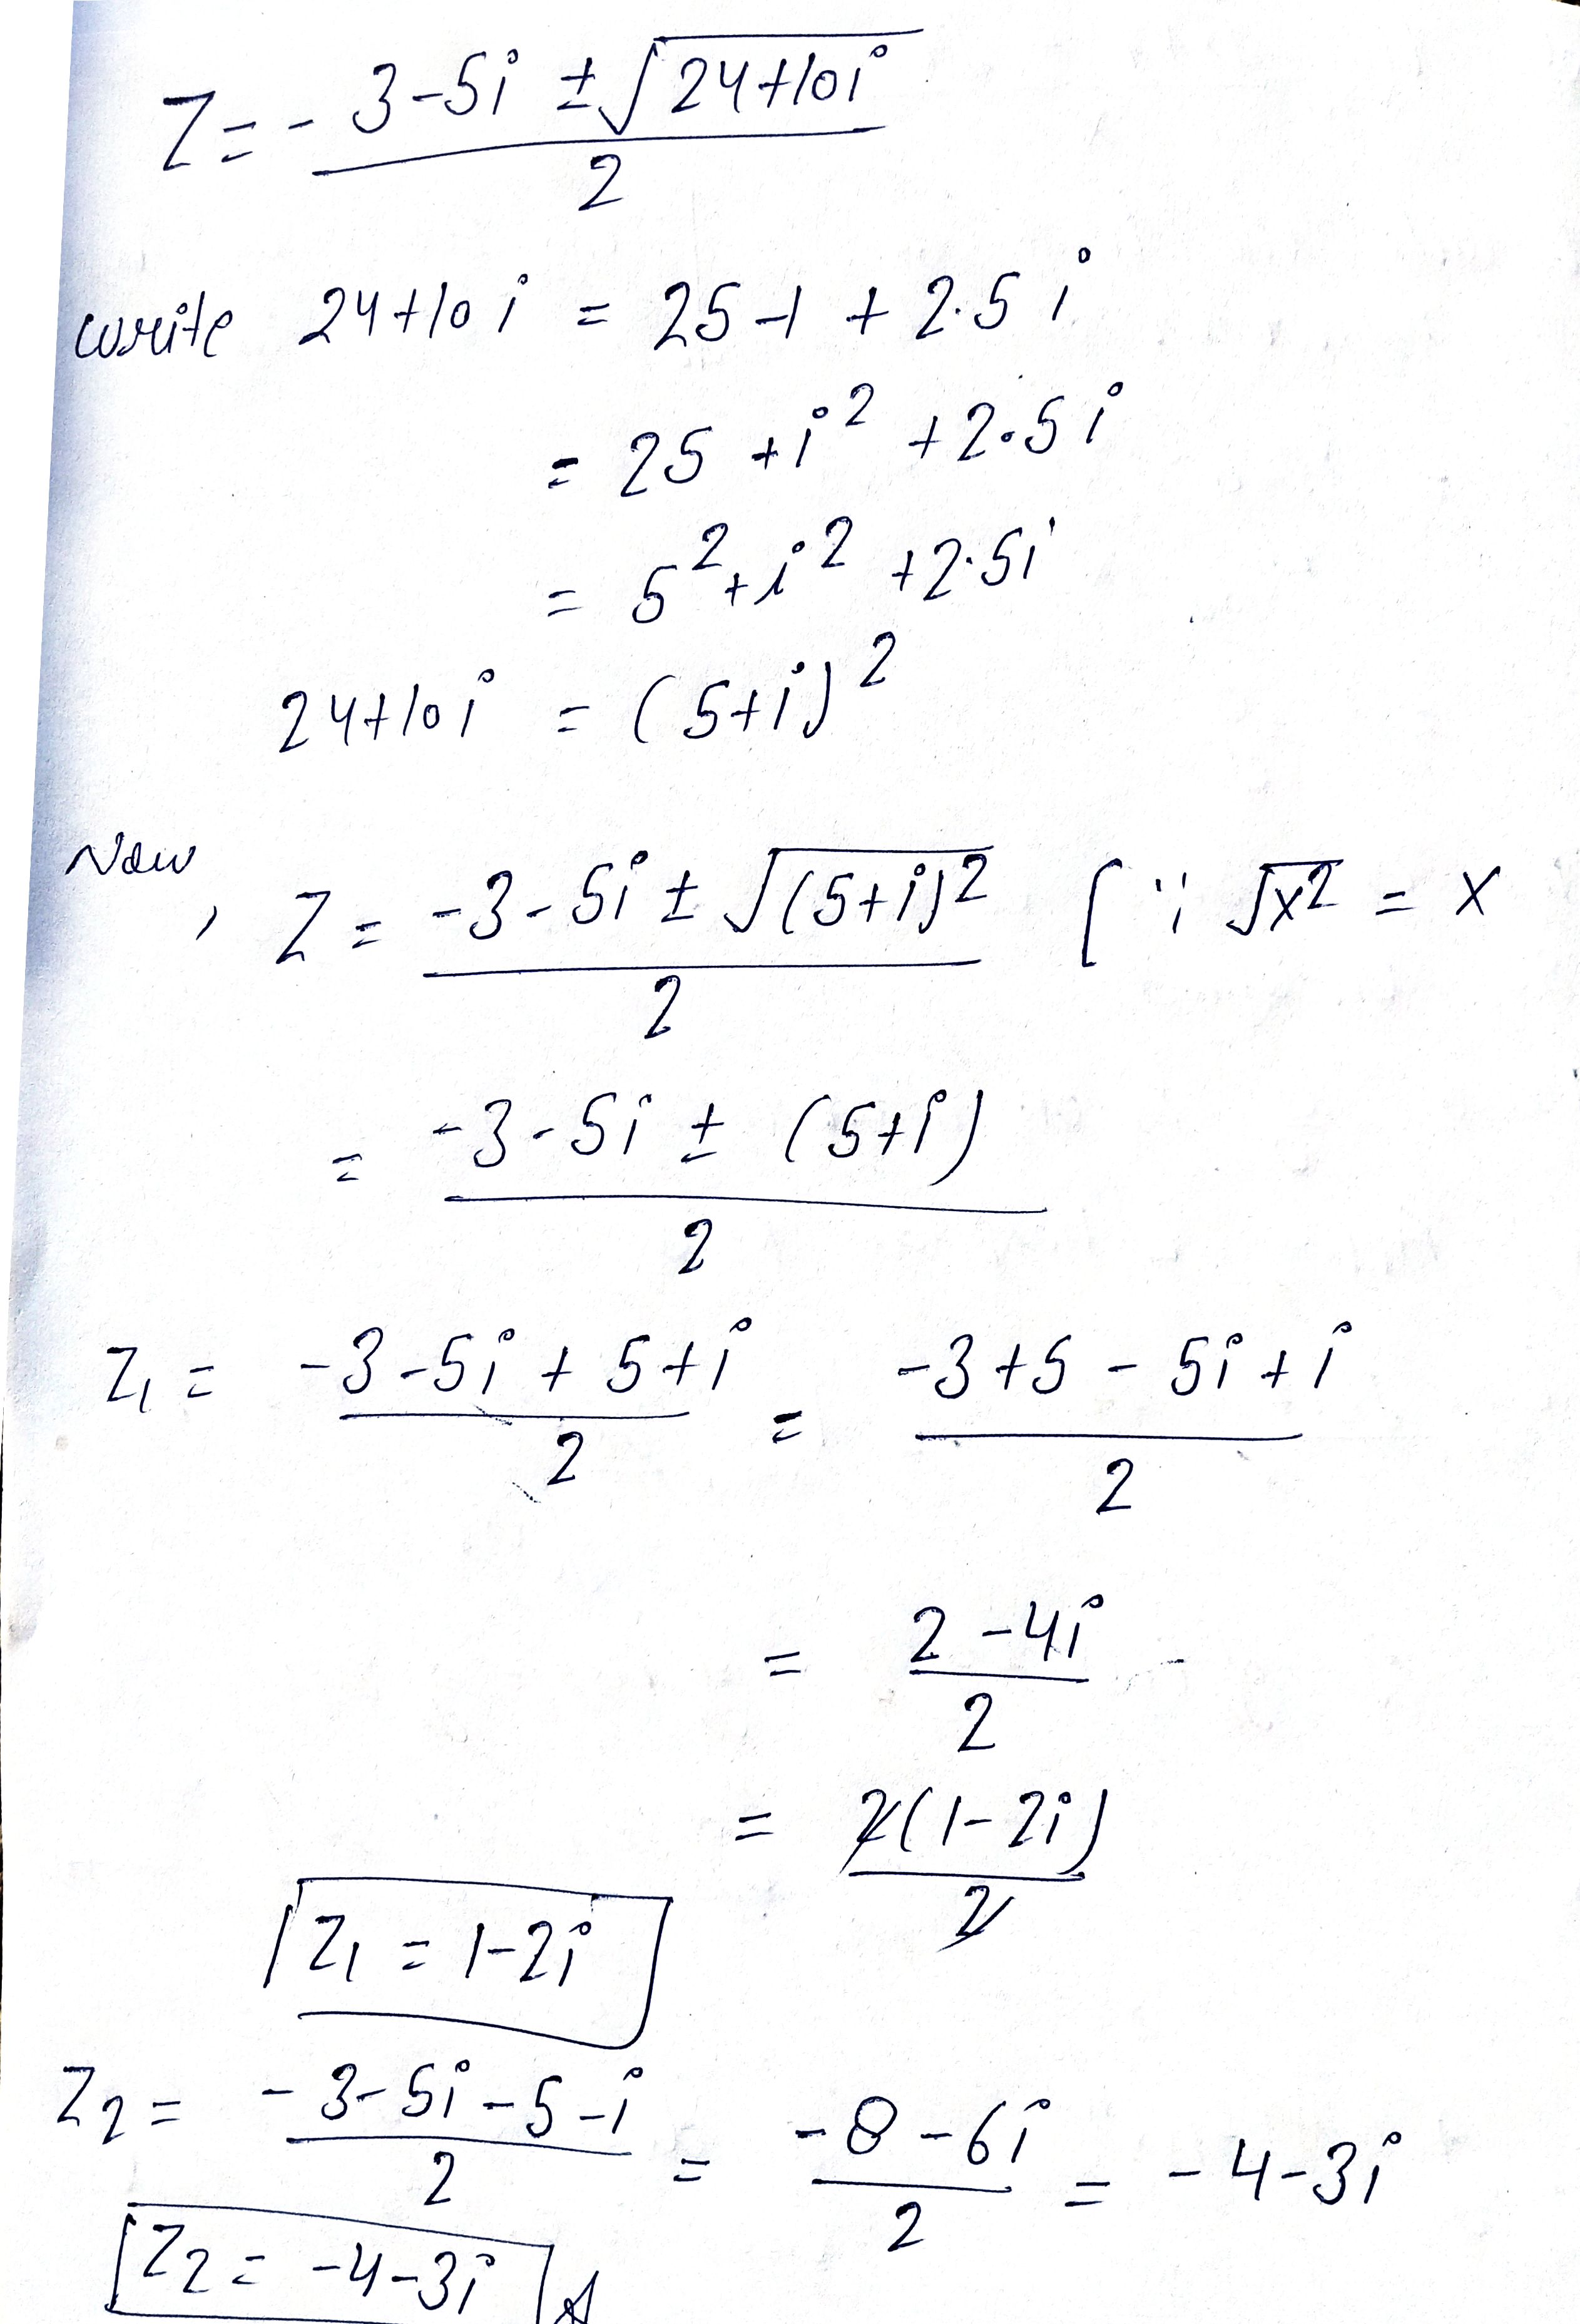 Z = - 3-5i ± √24+10i / 2
write 24+10i = 25-1 + 2·5i
= 25 + i² + 2·5i
= 5² + i² + 2·5i
24+10i = (5+i)²
Now, Z = -3-5i ± √(5+i)² / 2 [∵ √x² = x
= -3-5i ± (5+i) / 2
Z₁ = -3-5i+5+i / 2 = -3+5-5i+i / 2
= 2-4i / 2
= 2(1-2i) / 2
Z₁ = 1-2i
Z₂ = -3-5i-5-i / 2 = -8-6i / 2 = -4-3i
Z₂ = -4-3i